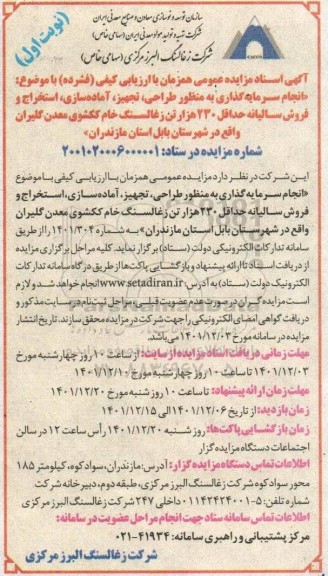 (نوبت اول)
سازمان توسعه و نوسازی معادن و صنایع معدنی ایران
شرکت تهیه و تولید مواد معدنی ایران (سهامی خاص)
شرکت زغالسنگ البرز مرکزی (سهامی خاص)
آگهی اسناد مزایده عمومی همزمان با ارزیابی کیفی (فشرده) با موضوع:
«انجام سرمایه گذاری به منظور طراحی، تجهیز، آماده‌سازی، استخراج و
فروش سالیانه حداقل ۲۳۰ هزار تن زغالسنگ خام ککشوی معدن گلیران
واقع در شهرستان بابل استان مازندران»
شماره مزایده در ستاد: ۲۰۰۱۰۲۰۰۰۶۰۰۰۰۰۱
این شرکت در نظر دارد مزایده عمومی همزمان با ارزیابی کیفی با موضوع
«انجام سرمایه گذاری به منظور طراحی، تجهیز، آماده سازی، استخراج و
فروش سالیانه حداقل ۲۳۰ هزار تن زغالسنگ خام ککشوی معدن گلیران
واقع در شهرستان بابل استان مازندران» به شماره ۱۴۰۱/۳۰۴ را از طریق
سامانه تدارکات الکترونیکی دولت (ستاد) برگزار نماید. کلیه مراحل برگزاری مزایده
از دریافت اسناد تا ارائه پیشنهاد و بازگشایی پاکت‌ها از طریق درگاه سامانه تدارکات
الکترونیک دولت (ستاد) به آدرس: www.setadiran.ir انجام خواهد شد و لازم
است مزایده گران در صورت عدم عضویت قبلی، مراحل ثبت نام در سایت مذکور و
دریافت گواهی امضای الکترونیکی را جهت شرکت در مزایده محقق سازند. تاریخ انتشار
مزایده در سامانه مورخ ۱۴۰۱/۱۲/۰۳ می‌باشد.
مهلت زمانی دریافت اسناد مزایده از سایت: از ساعت ۱۰ روز چهارشنبه مورخ
۱۴۰۱/۱۲/۰۳ تا ساعت ۱۰ روز چهارشنبه مورخ ۱۴۰۱/۱۲/۱۰
مهلت زمان ارائه پیشنهاد: تا ساعت ۱۰ روز شنبه مورخ ۱۴۰۱/۱۲/۲۰
زمان بازدید: از تاریخ ۱۴۰۱/۱۲/۰۶ الی ۱۴۰۱/۱۲/۱۵
زمان بازگشایی پاکت‌ها: روز شنبه ۱۴۰۱/۱۲/۲۰ رأس ساعت ۱۲ در سالن
اجتماعات دستگاه مزایده گزار
اطلاعات تماس دستگاه مزایده گزار: آدرس: مازندران، سوادکوه، کیلومتر ۱۸۵
محور سوادکوه شرکت زغالسنگ البرز مرکزی، طبقه دوم، دبیرخانه شرکت
شماره تلفن: ۵-۰۱۱۴۲۴۲۴۰۰۱ داخلی ۲۴۷ شرکت زغالسنگ البرز مرکزی
اطلاعات تماس سامانه ستاد جهت انجام مراحل عضویت در سامانه:
مرکز پشتیبانی و راهبری سامانه: ۴۱۹۳۴-۰۲۱
شرکت زغالسنگ البرز مرکزی